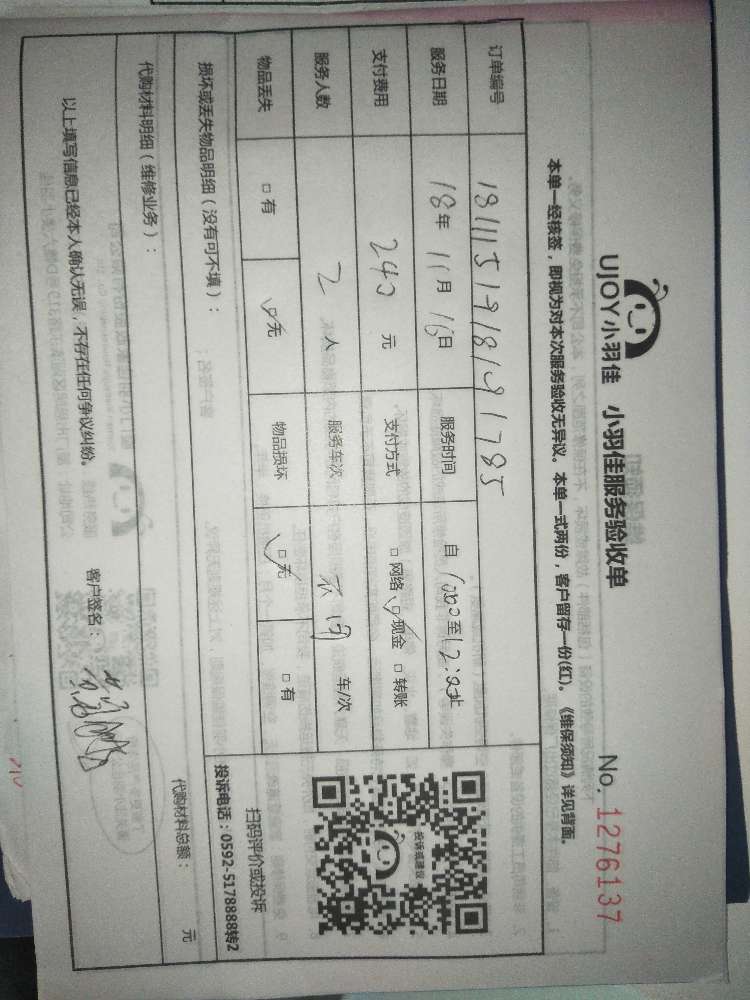 UJOY小羽佳 小羽佳服务验收单 No. 1276137
本单一经核签，即视为对本次服务验收无异议。本单一式两份，客户留存一份(红)。《维保须知》详见背面。
订单编号 1811151918191785
服务日期 18年 11月 16日 服务时间 自 至12:00止
支付费用 240 元 支付方式 □网络 ☑现金 □转账
服务人数 2 人 服务车次 车/次
物品丢失 □有 ☑无 物品损坏 ☑无 □有
投诉或建议
扫码评价或投诉
投诉电话：0592-5178888转2
损坏或丢失物品明细（没有可不填）：
代购材料明细（维修业务）： 代购材料总额： 元
以上填写信息已经本人确认无误，不存在任何争议纠纷。 客户签名：